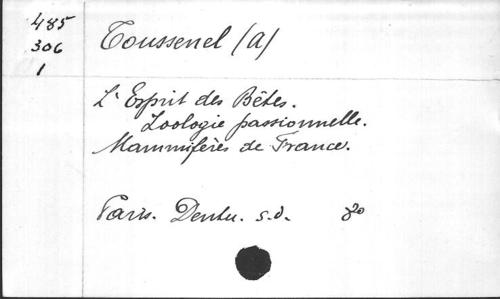 485
306
1
Toussenel (A)
L'Esprit des Bêtes.
Zoologie passionnelle.
Mammifères de France.
Paris. Dentu. s.d. 8°